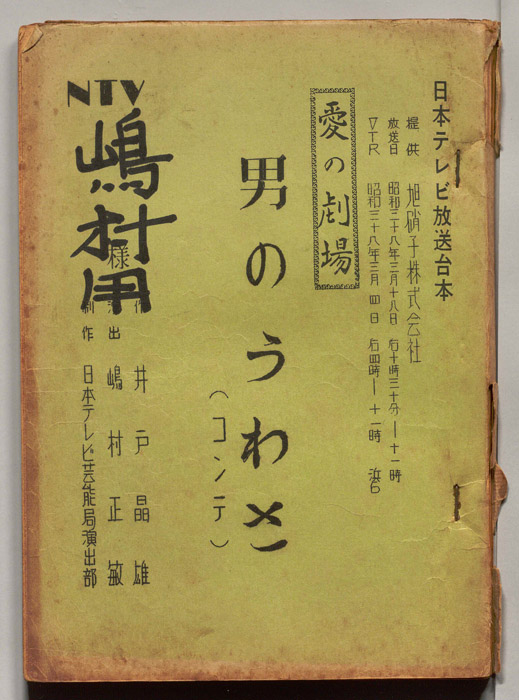 日本テレビ放送台本
提供 旭硝子株式会社
放送日 昭和三十八年三月十八日 后十時三十分―十一時
VTR 昭和三十八年三月四日 后四時―十一時 浜Ｄ
愛の劇場
男のうわさ
(コンテ)
作 井戸晶雄
演出 嶋村正敏
制作 日本テレビ芸能局演出部
NTV
嶋村用
様